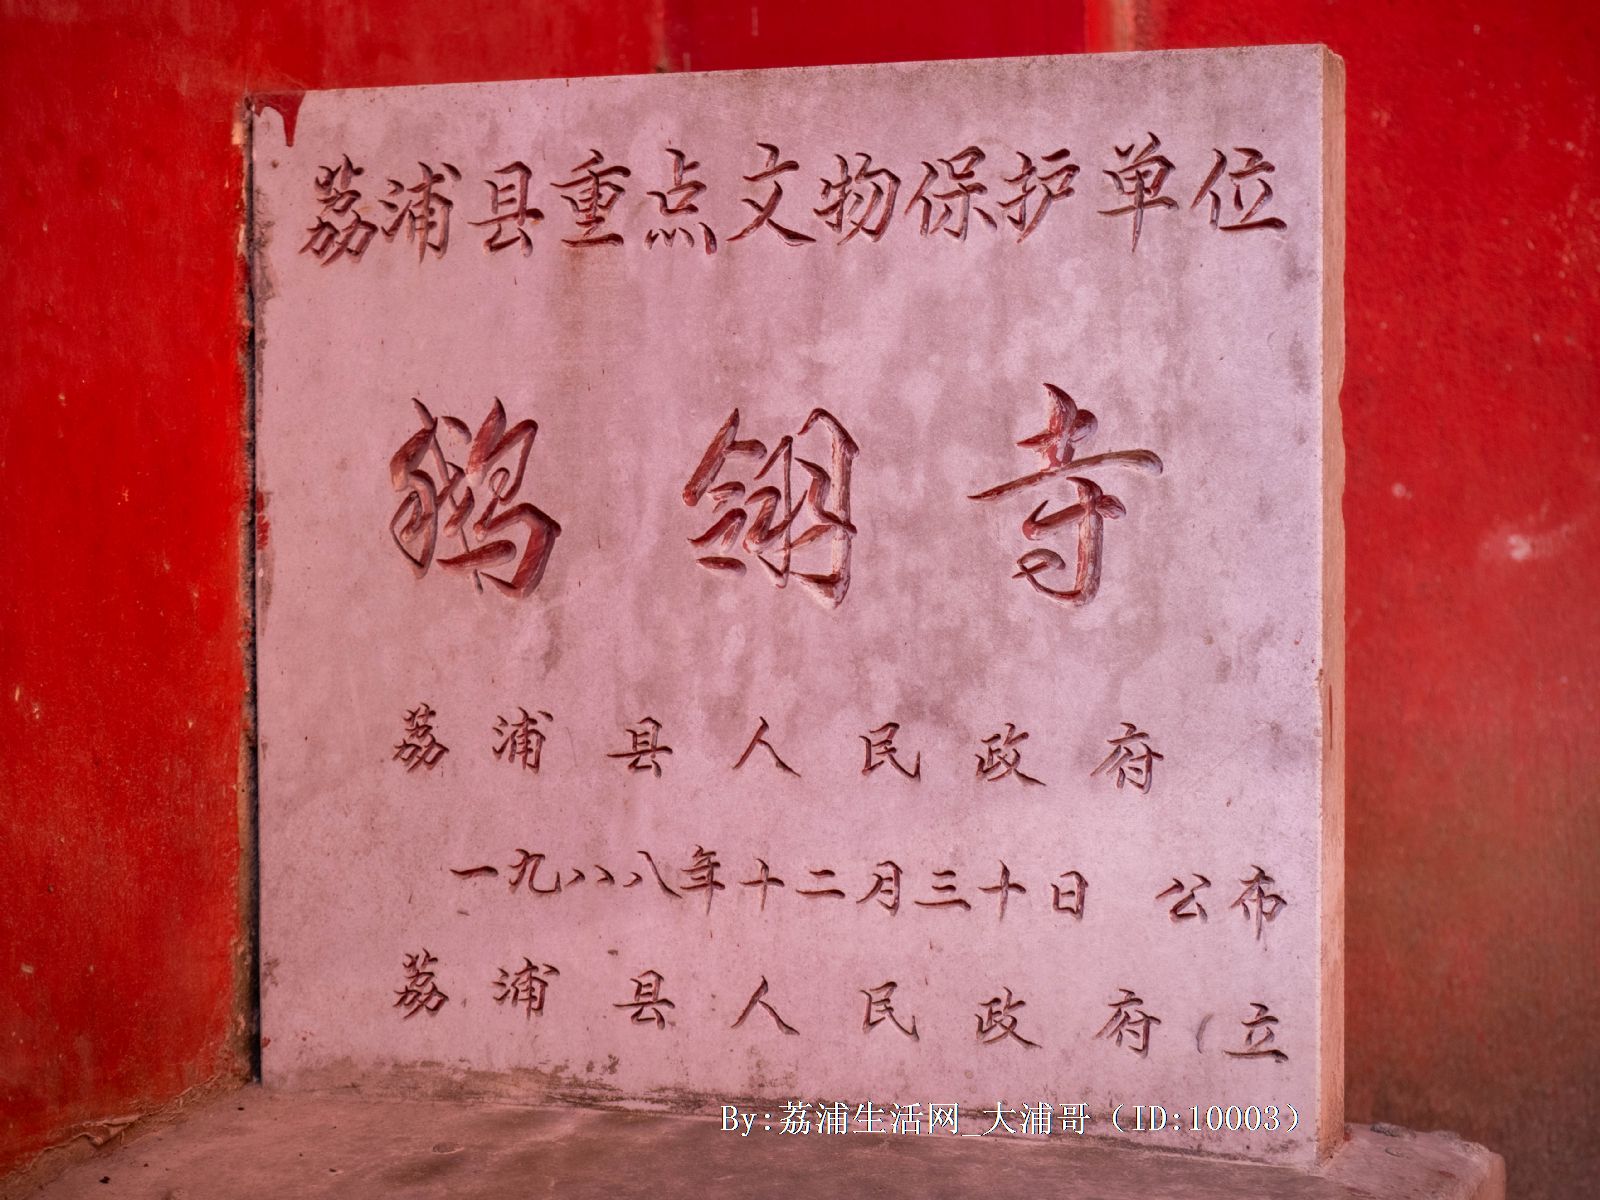 荔浦县重点文物保护单位
鹅翎寺
荔浦县人民政府
一九八八年十二月三十日 公布
荔浦县人民政府 立
By:荔浦生活网_大浦哥（ID:10003）